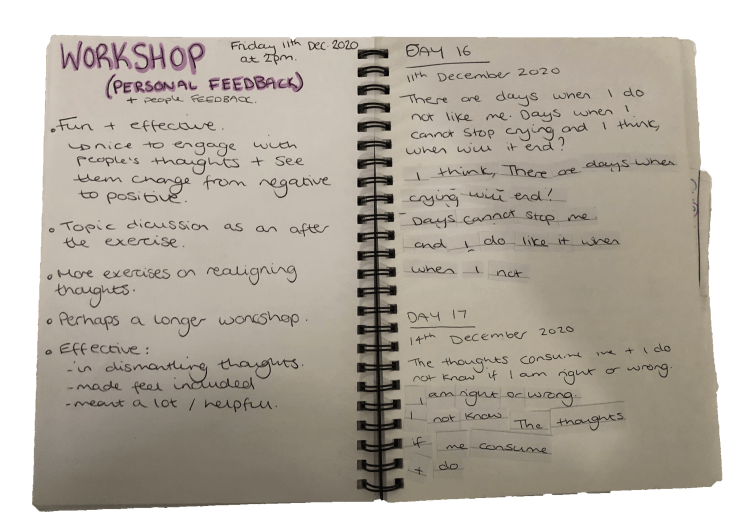 WORKSHOP
Friday 11th Dec 2020
at 2pm.
(PERSONAL FEEDBACK)
+ people FEEDBACK.
• Fun + effective.
↳ nice to engage with
people's thoughts + see
them change from negative
to positive.
• Topic dicussion as an after
the exercise.
• More exercises on realigning
thoughts.
• Perhaps a longer workshop.
• Effective:
- in dismantling thoughts.
- made feel included
- meant a lot / helpful.
DAY 16
11th December 2020
There are days when I do
not like me. Days when I
cannot stop crying and I think,
when will it end?
I think, There are days when
crying will end!
Days cannot stop me
and I do like it when
when I not
DAY 17
14th December 2020
The thoughts consume me + I do
not know if I am right or wrong.
I am right or wrong.
I not know The thoughts
if me consume
+ do